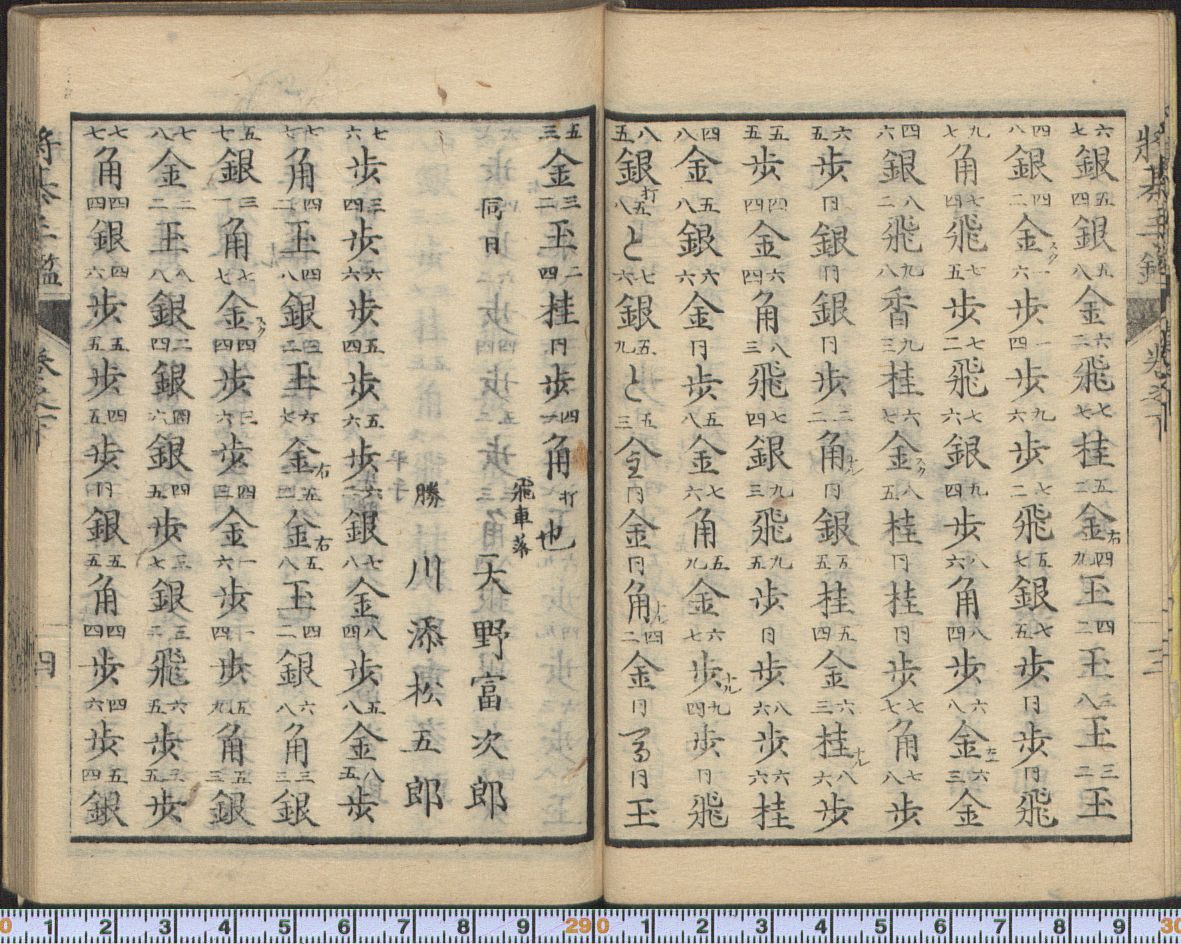 将棊手鑑 巻之下 三
六七銀四五銀五八金六二飛七七桂五二金右四九玉四二玉三八玉三二玉
四八銀四二金スク一六歩一四歩九六歩七二飛五七銀七五歩同歩同飛
九七角七四飛七五歩七二飛七六銀九四歩八六角八四歩六八金左上六三金
四六銀八二飛九八香九三桂六七金スク八五桂同桂同歩七七角七八歩
六五歩同銀同銀同歩三二角ナル同銀五五桂五四金六三桂ナル八六歩
五五歩四四金六四角八三飛七四銀九三飛九五歩同歩八六歩六六桂
四八金五八銀六六金同歩五八金七六角五九金六七歩ナル九四歩同飛
八五銀打五八と七六銀五九と五三金同金同角ナル四二金同馬同玉
五三金三二玉二四桂同歩四一角打也
飛車落 天野富次郎
同日 勝 川添松五郎
七六歩三四歩六六歩五四歩五六歩六二銀七八金八四歩五八金八五歩
七七角四二玉四八銀三二玉六七金右五二金右五八玉四二銀六八角三三銀
五七銀三一角七七金スク四四歩三六歩四三金一六歩一四歩五九角五三銀
七八金二二玉八八銀二四銀四六銀四五歩三七銀三二飛六五歩三五歩
七七角四四銀四六歩五五歩四五歩同銀五五角四四歩四六歩五四銀
将棊手鑑 巻之下 四